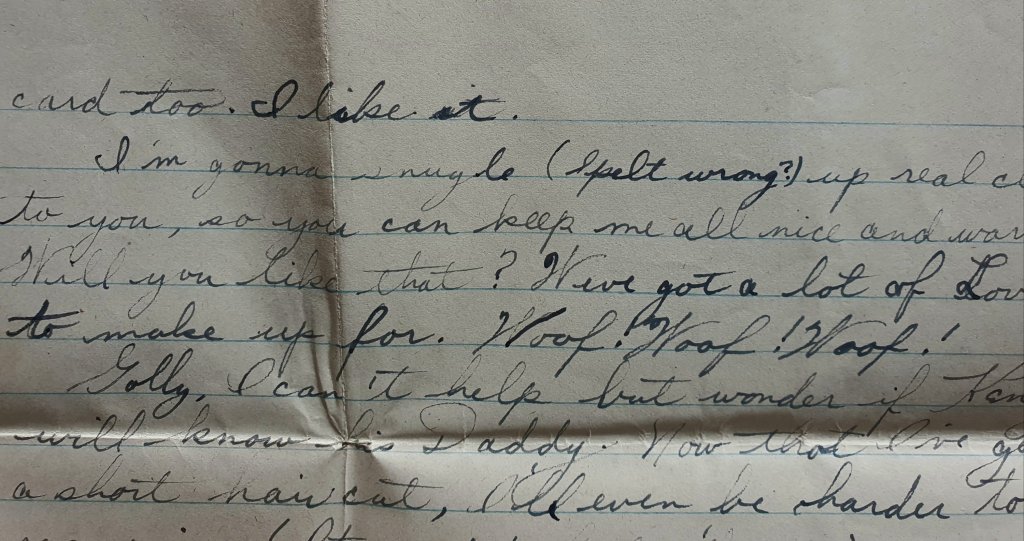 card too. I like it.
I'm gonna snugle (Spelt wrong?) up real
to you, so you can keep me all nice and
Will you like that? We've got a lot of
to make up for. Woof! Woof! Woof!
Golly, I can't help but wonder if
will know his Daddy. Now that I've
a short haircut, I'll even be harder to